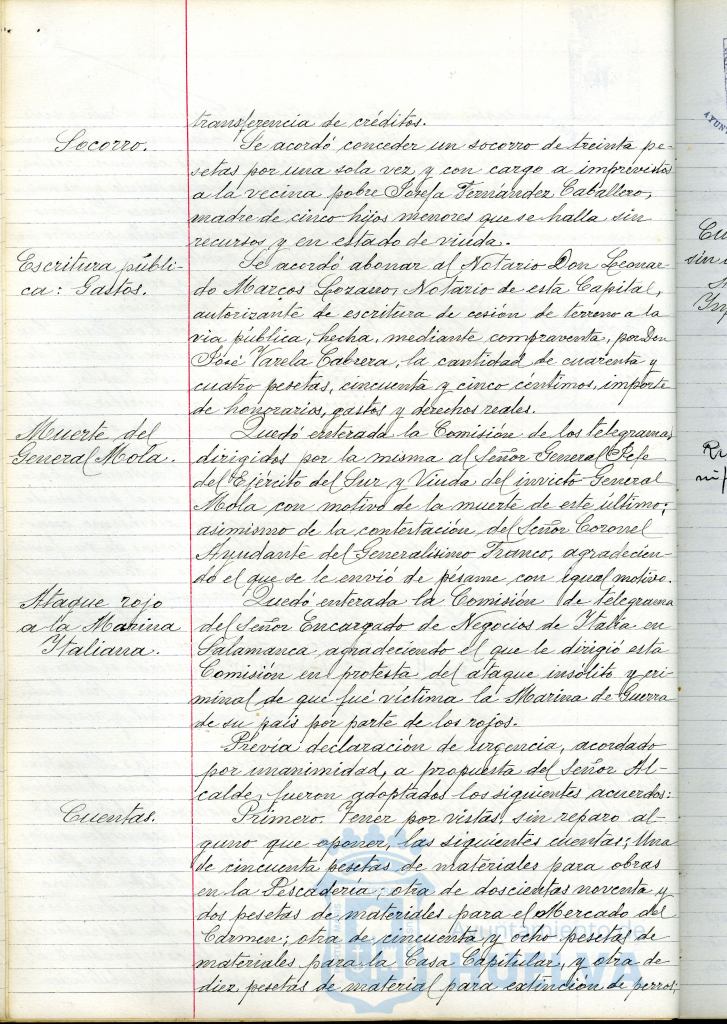 transferencia de créditos.
Socorro.
Se acordó conceder un socorro de treinta pe-
setas por una sola vez y con cargo a imprevistos
a la vecina pobre Josefa Fernández Caballero,
madre de cinco hijos menores que se halla sin
recursos y en estado de viuda.
Escritura públi-
ca: Gastos.
Se acordó abonar al Notario Don Leonar-
do Marcos Lozano, Notario de esta Capital,
autorizante de escritura de cesión de terreno a la
via pública, hecha, mediante compraventa, por Don
José Varela Cabrera, la cantidad de cuarenta y
cuatro pesetas, cincuenta y cinco céntimos, importe
de honorarios, gastos y derechos reales.
Muerte del
General Mola.
Quedó enterada la Comisión de los telegramas
dirigidos por la misma al Señor General Jefe
del Ejército del Sur y Viuda del invicto General
Mola con motivo de la muerte de este último;
asimismo de la contestación del Señor Coronel
Ayudante del Generalísimo Franco, agradecien-
do el que se le envió de pésame con igual motivo.
Ataque rojo
a la Marina
Italiana.
Quedó enterada la Comisión de telegrama
del Señor Encargado de Negocios de Italia en
Salamanca agradeciendo el que le dirigió esta
Comisión en protesta del ataque insólito y cri-
minal de que fué víctima la Marina de Guerra
de su país por parte de los rojos.
Previa declaración de urgencia, acordado
por unanimidad, a propuesta del Señor Al-
calde, fueron adoptados los siguientes acuerdos:
Cuentas.
Primero. Tener por vistas, sin reparo al-
guno que oponer, las siguientes cuentas; Una
de cincuenta pesetas de materiales para obras
en la Pescadería; otra de doscientas noventa y
dos pesetas de materiales para el Mercado del
Carmen; otra de cincuenta y ocho pesetas de
materiales para la Casa Capitular, y otra de
diez pesetas de material para extinción de perros;
Ayuntamiento de
HUELVA